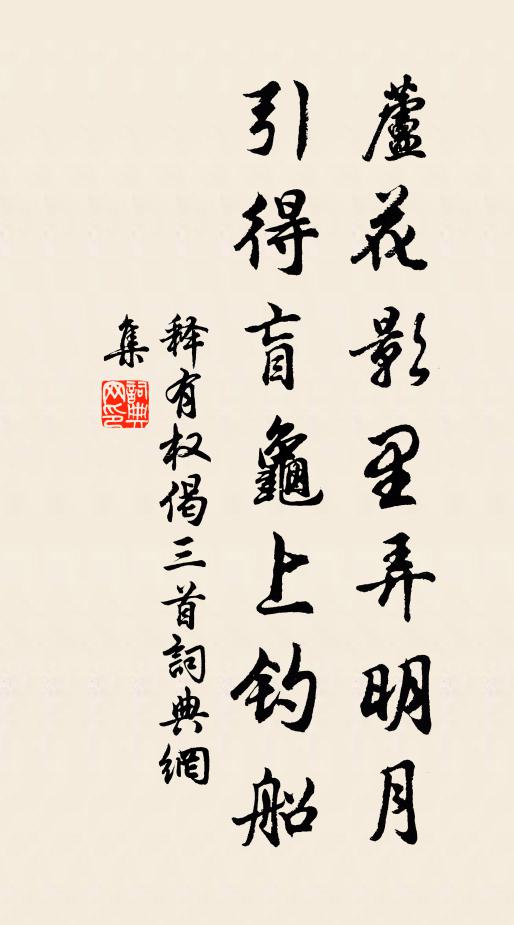 蘆花影里弄明月
引得盲龜上钓船
释有权偈三首詞典網
集
詞典
网印